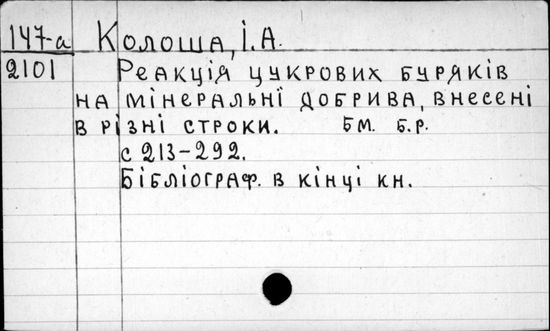 147-а Колоша, І. А.
2101 Реакція цукрових буряків
на мінеральні добрива, внесені
в різні строки. Б.М. Б.р.
с 213-292.
Бібліограф. в кінці кн.